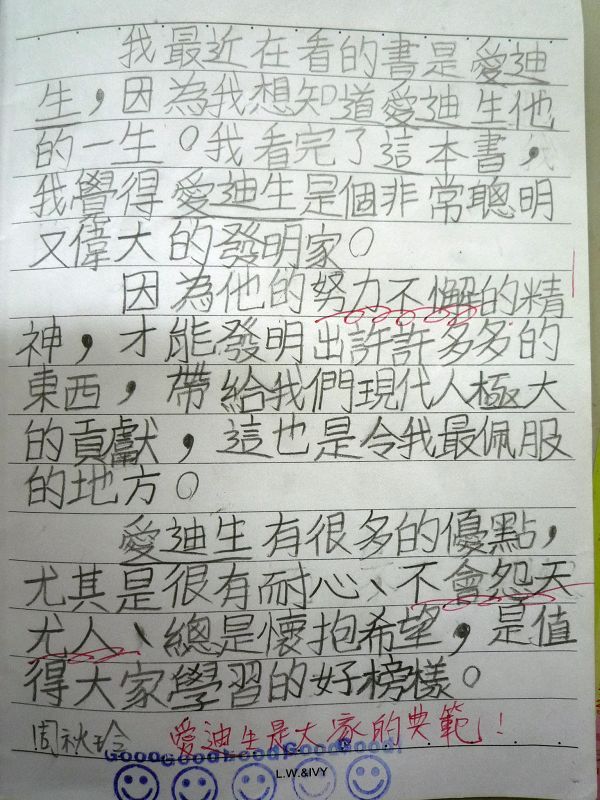 我最近在看的書是愛迪
生，因為我想知道愛迪生他
的一生。我看完了這本書，
我覺得愛迪生是個非常聰明
又偉大的發明家。
因為他的努力不懈的精
神，才能發明出許許多多的
東西，帶給我們現代人極大
的貢獻，這也是令我最佩服
的地方。
愛迪生有很多的優點，
尤其是很有耐心、不會怨天
尤人、總是懷抱希望，是值
得大家學習的好榜樣。
周秋玲 愛迪生是大家的典範！
Good Good Good Good Good!
L.W.&IVY